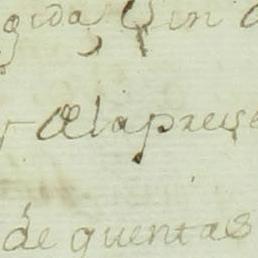 gida, Sin
de la prese
de quentas